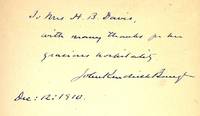 To Mrs H. B. Davis,
with many thanks for her
gracious hospitality
John Kendrick Bangs
Dec: 12: 1910.